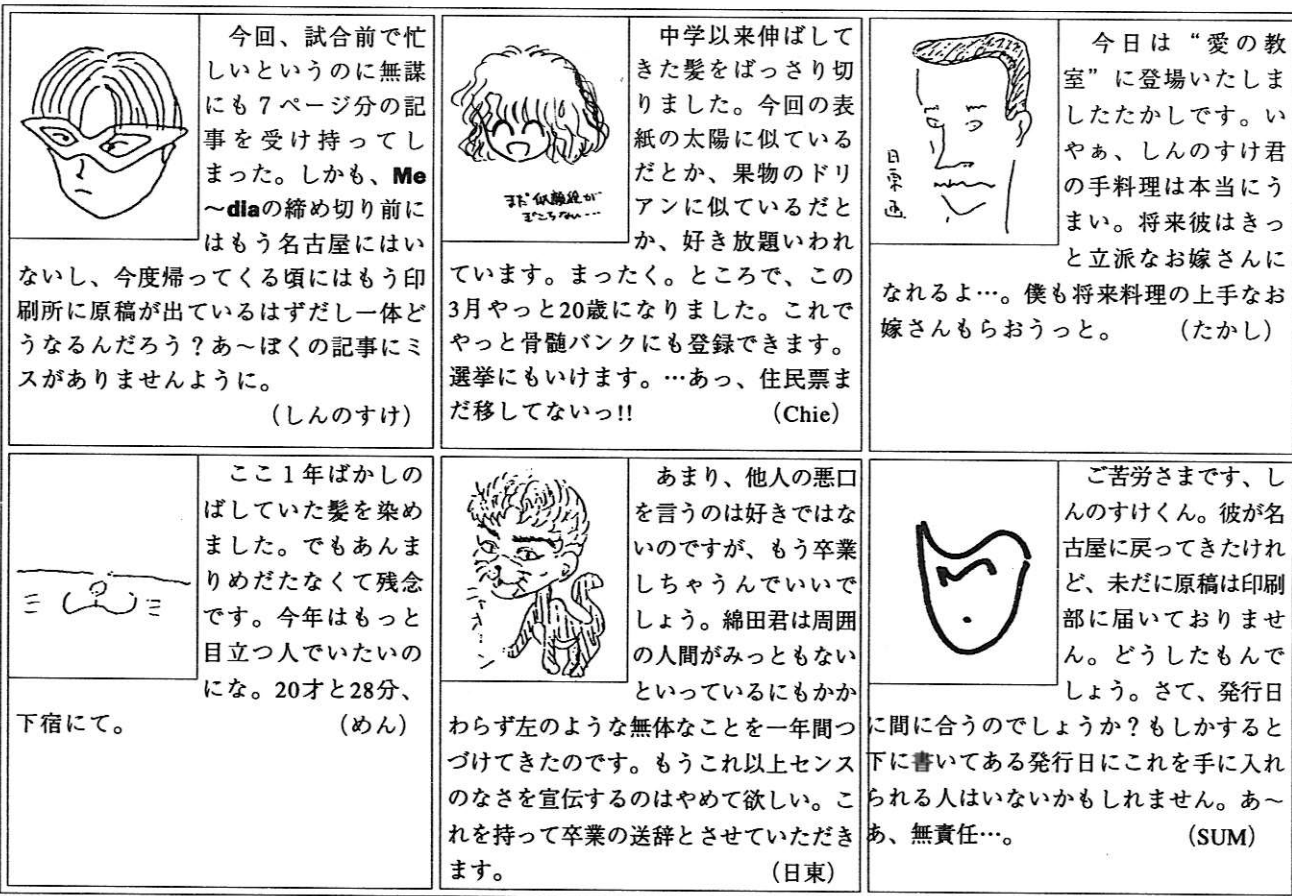 今回、試合前で忙
しいというのに無謀
にも7ページ分の記
事を受け持ってし
まった。しかも、Me
~diaの締め切り前に
はもう名古屋にはい
ないし、今度帰ってくる頃にはもう印
刷所に原稿が出ているはずだし一体ど
うなるんだろう?あ~ぼくの記事にミ
スがありませんように。
(しんのすけ)
中学以来伸ばして
きた髪をばっさり切
りました。今回の表
紙の太陽に似ている
だとか、果物のドリ
アンに似ているだと
か、好き放題いわれ
ています。まったく。ところで、この
3月やっと20歳になりました。これで
やっと骨髄バンクにも登録できます。
選挙にもいけます。…あっ、住民票ま
だ移してないっ!! (Chie)
まだ似顔絵が
今日は“愛の教
室”に登場いたしま
したたかしです。い
やぁ、しんのすけ君
の手料理は本当にう
まい。将来彼はきっ
と立派なお嫁さんに
なれるよ…。僕も将来料理の上手なお
嫁さんもらおうっと。 (たかし)
ここ1年ばかしの
ばしていた髪を染め
ました。でもあんま
りめだたなくて残念
です。今年はもっと
目立つ人でいたいの
にな。20才と28分、
下宿にて。 (めん)
あまり、他人の悪口
を言うのは好きではな
いのですが、もう卒業
しちゃうんでいいで
しょう。綿田君は周囲
の人間がみっともない
といっているにもかか
わらず左のような無体なことを一年間つ
づけてきたのです。もうこれ以上センス
のなさを宣伝するのはやめて欲しい。こ
れを持って卒業の送辞とさせていただき
ます。 (日東)
ご苦労さまです、し
んのすけくん。彼が名
古屋に戻ってきたけれ
ど、未だに原稿は印刷
部に届いておりませ
ん。どうしたもんで
しょう。さて、発行日
に間に合うのでしょうか?もしかすると
下に書いてある発行日にこれを手に入れ
られる人はいないかもしれません。あ~
あ、無責任…。 (SUM)